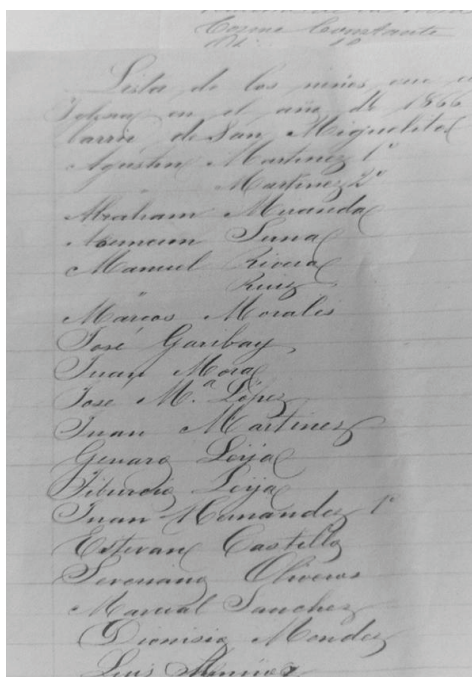 Lista de los niños que
en el año de 1866
barrio de San Miguelito
Agustin Martinez 1º
" Martinez 2º
Abraham Miranda
Luna
Manuel Rivera
" Ruiz
Marcos Morales
José Garibay
Juan Mora
Jose M.ª López
Juan Martinez
Genaro Leija
Tiburcio Leija
Juan Hernandez 1º
Estevan Castillo
Severiano Oliveros
Marcial Sanchez
Dionisio Mendez
Luis